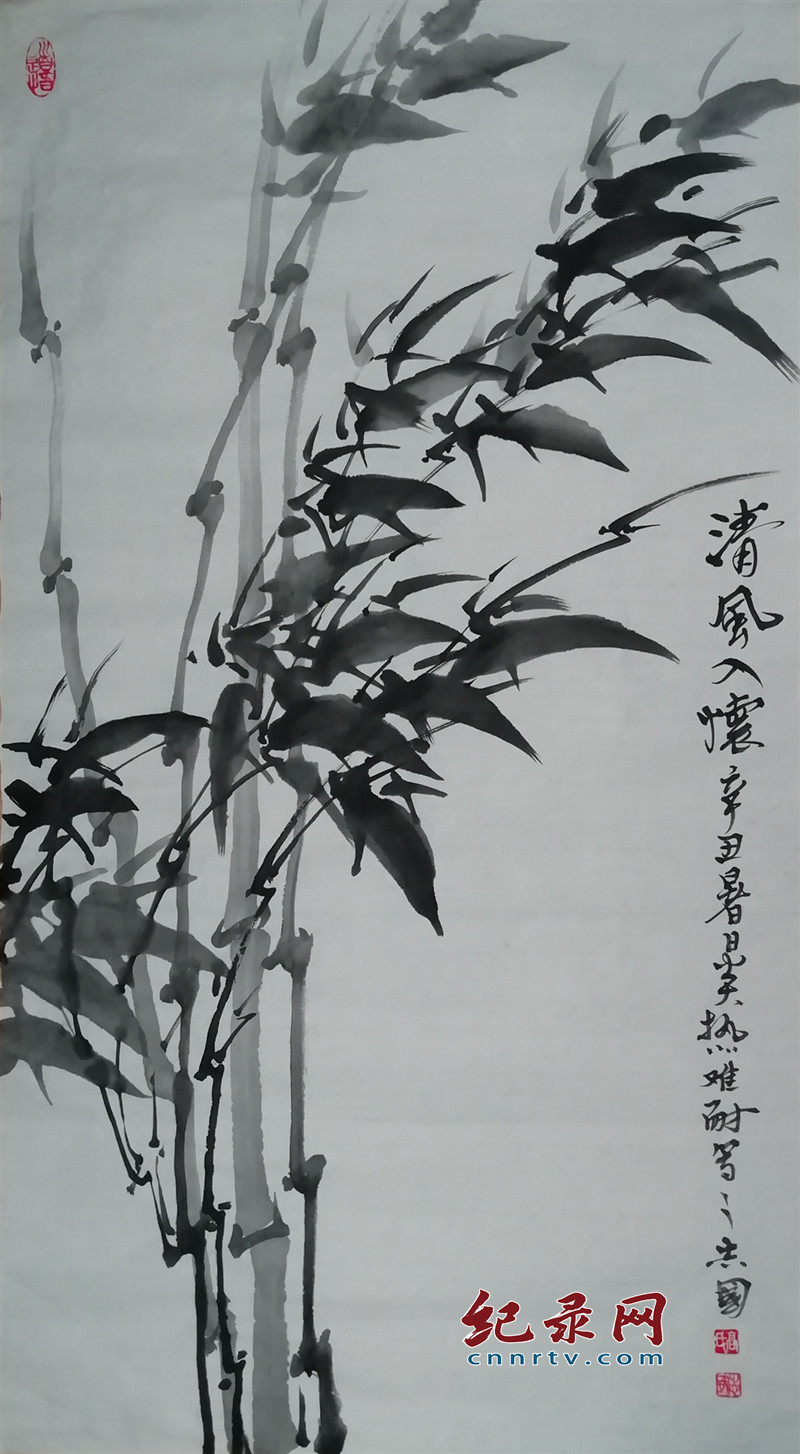 清風入懷 辛丑暑日炎热难耐写之 志國
纪录网
cnnrtv.com